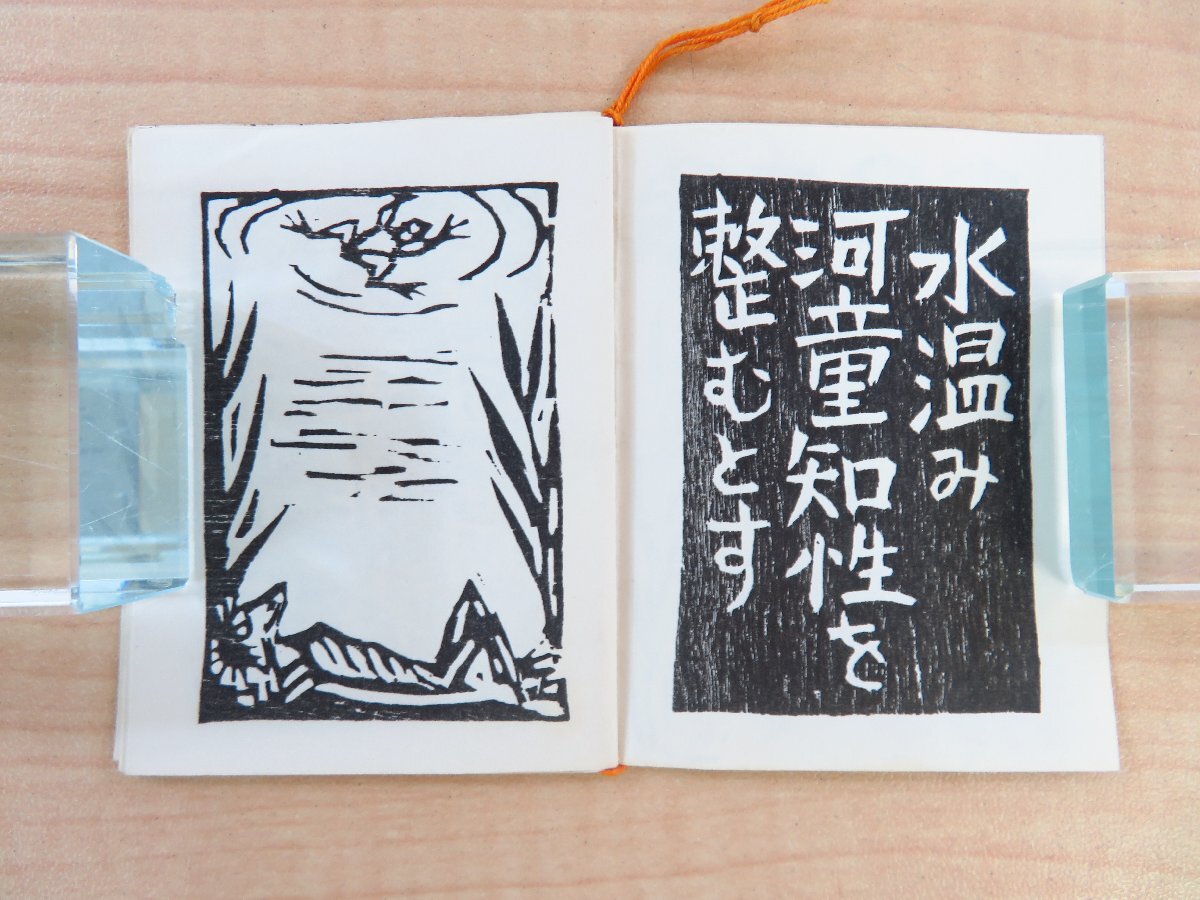 水温み
河童知性を
整むとす